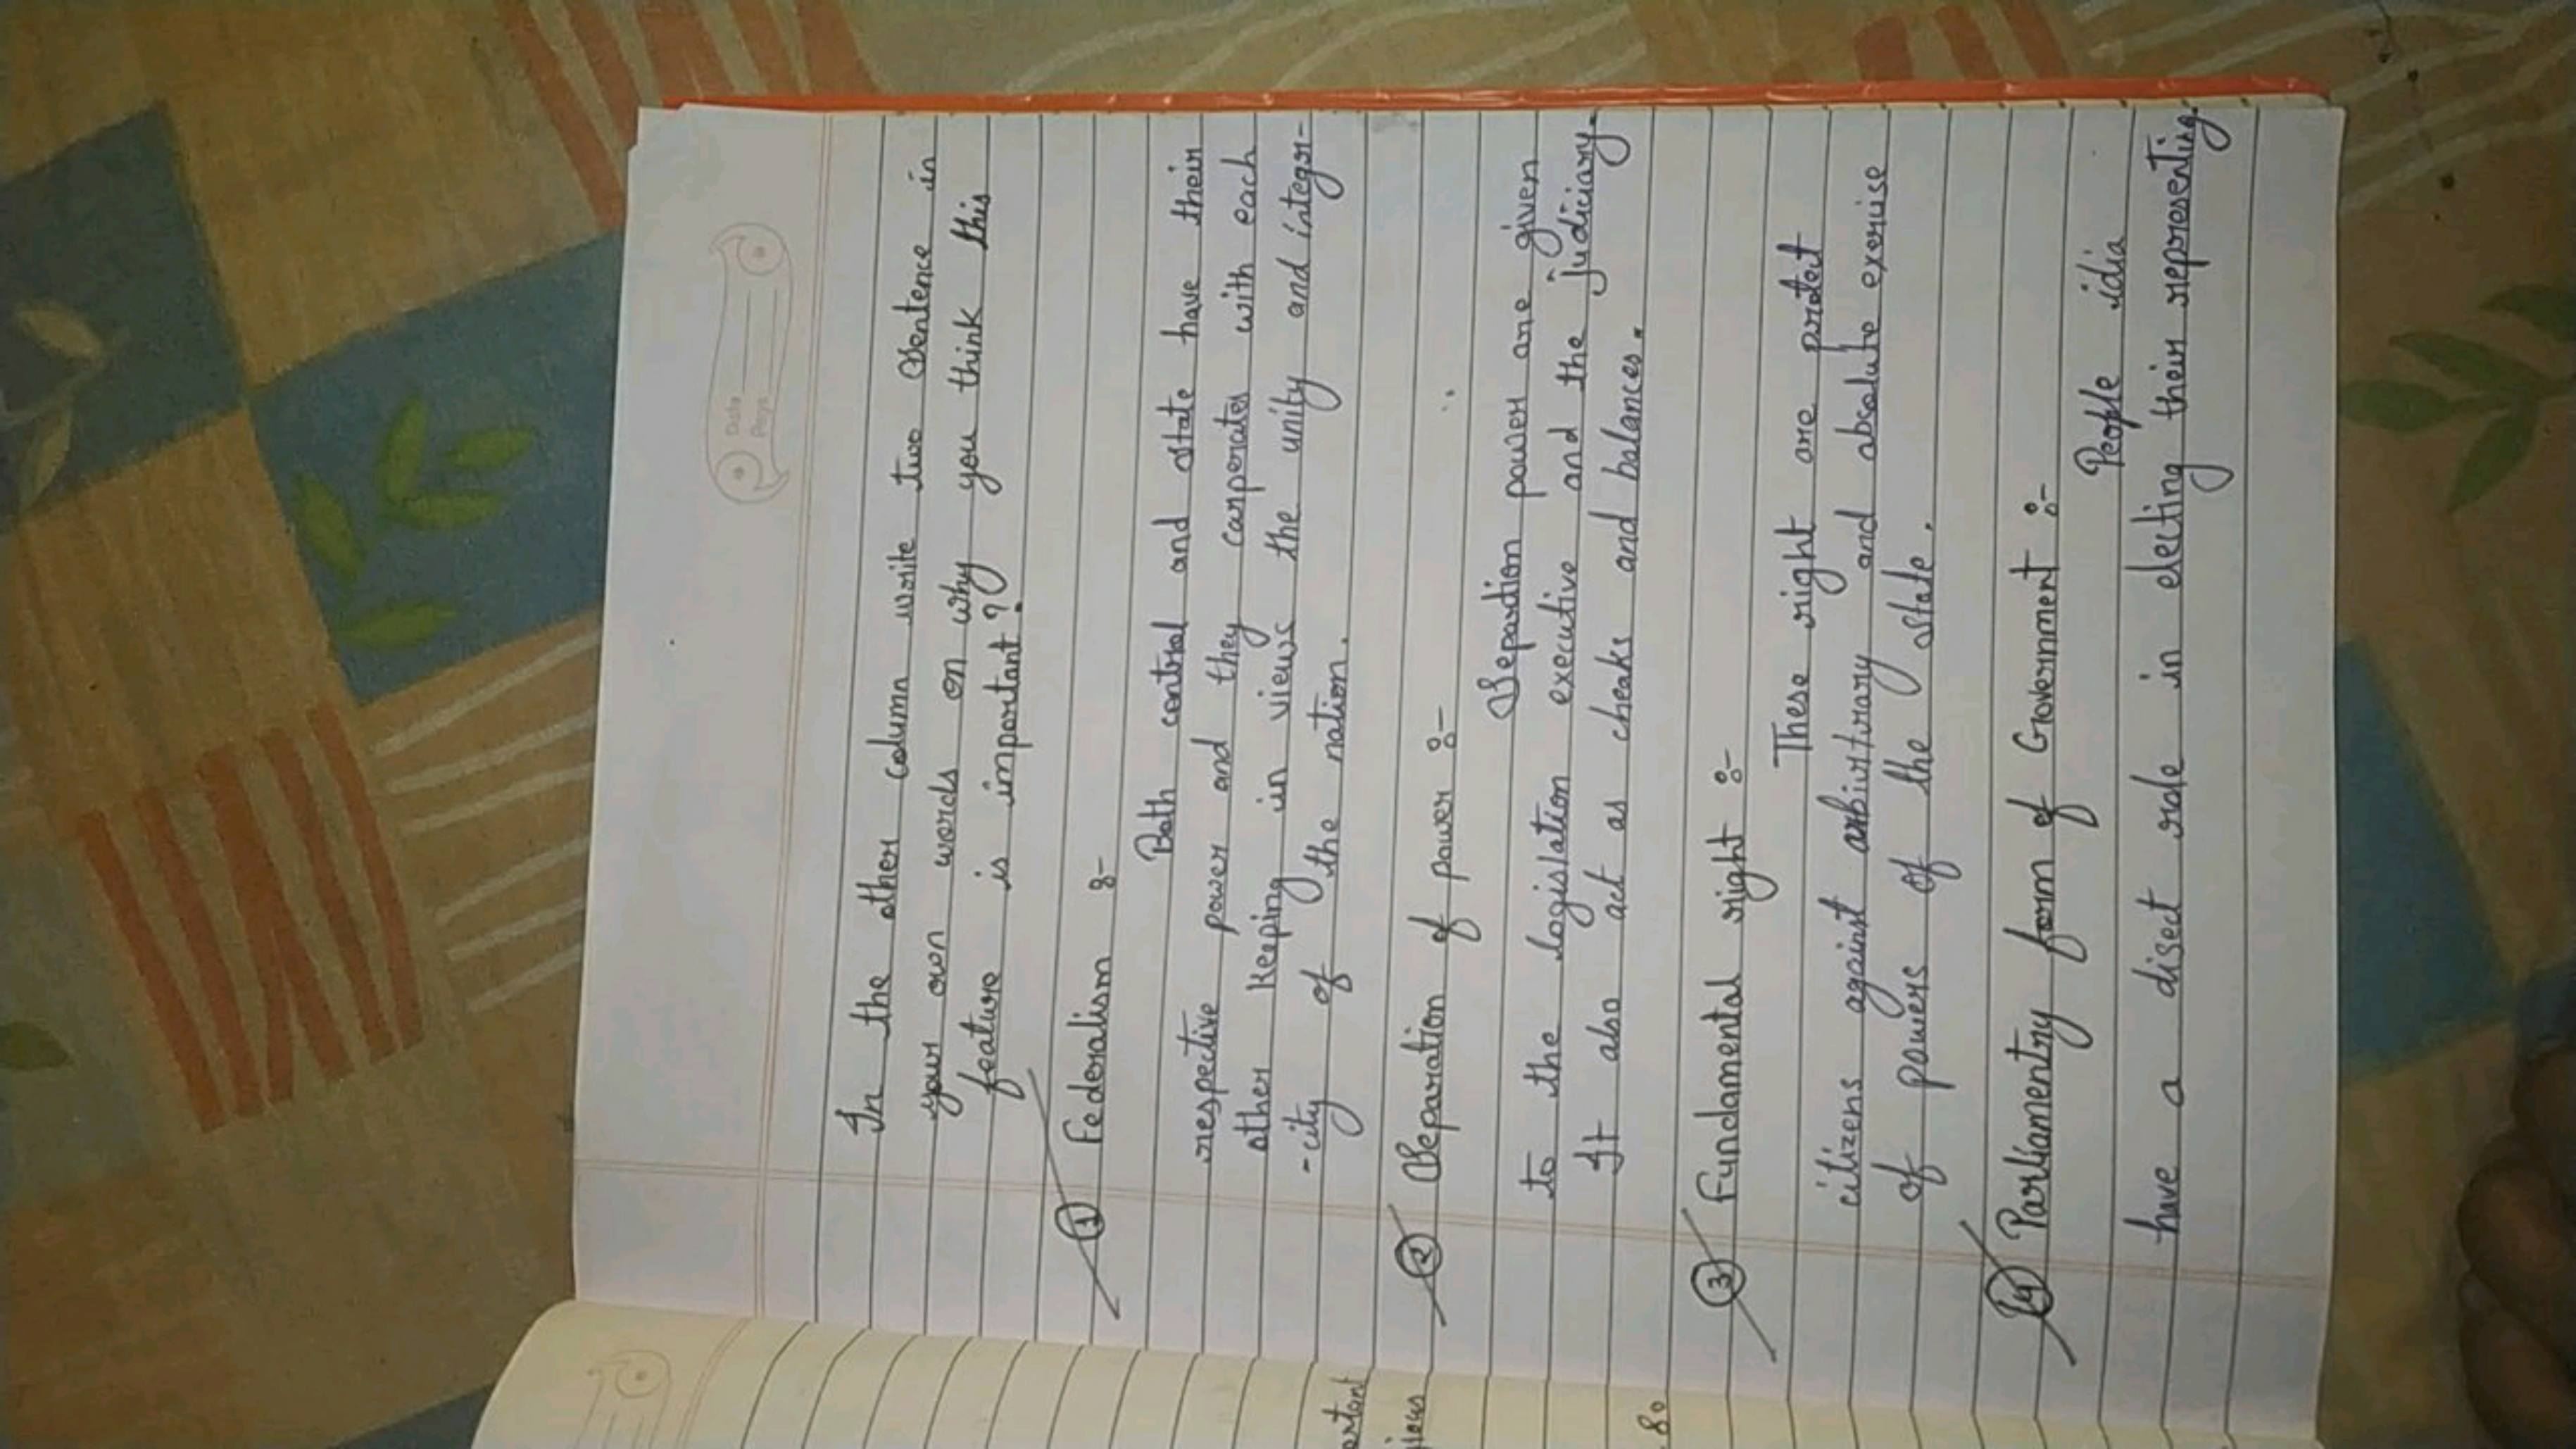 Date
Page
In the other column write two sentence in
your own words on why you think this
feature is important?
① Federalism :-
Both central and state have their
respective power and they carperates with each
other keeping in views the unity and integr-
-city of the nation.
② Separation of power :-
Separtion power are given
to the logislation executive and the judiciary.
It also act as cheaks and balances.
③ Fundamental right :-
These right are protect
citizens against arbivtrary and absolute exerise
of powers of the state.
④ Parliamentry form of Government :-
People idia
have a disect role in electing their representing
80